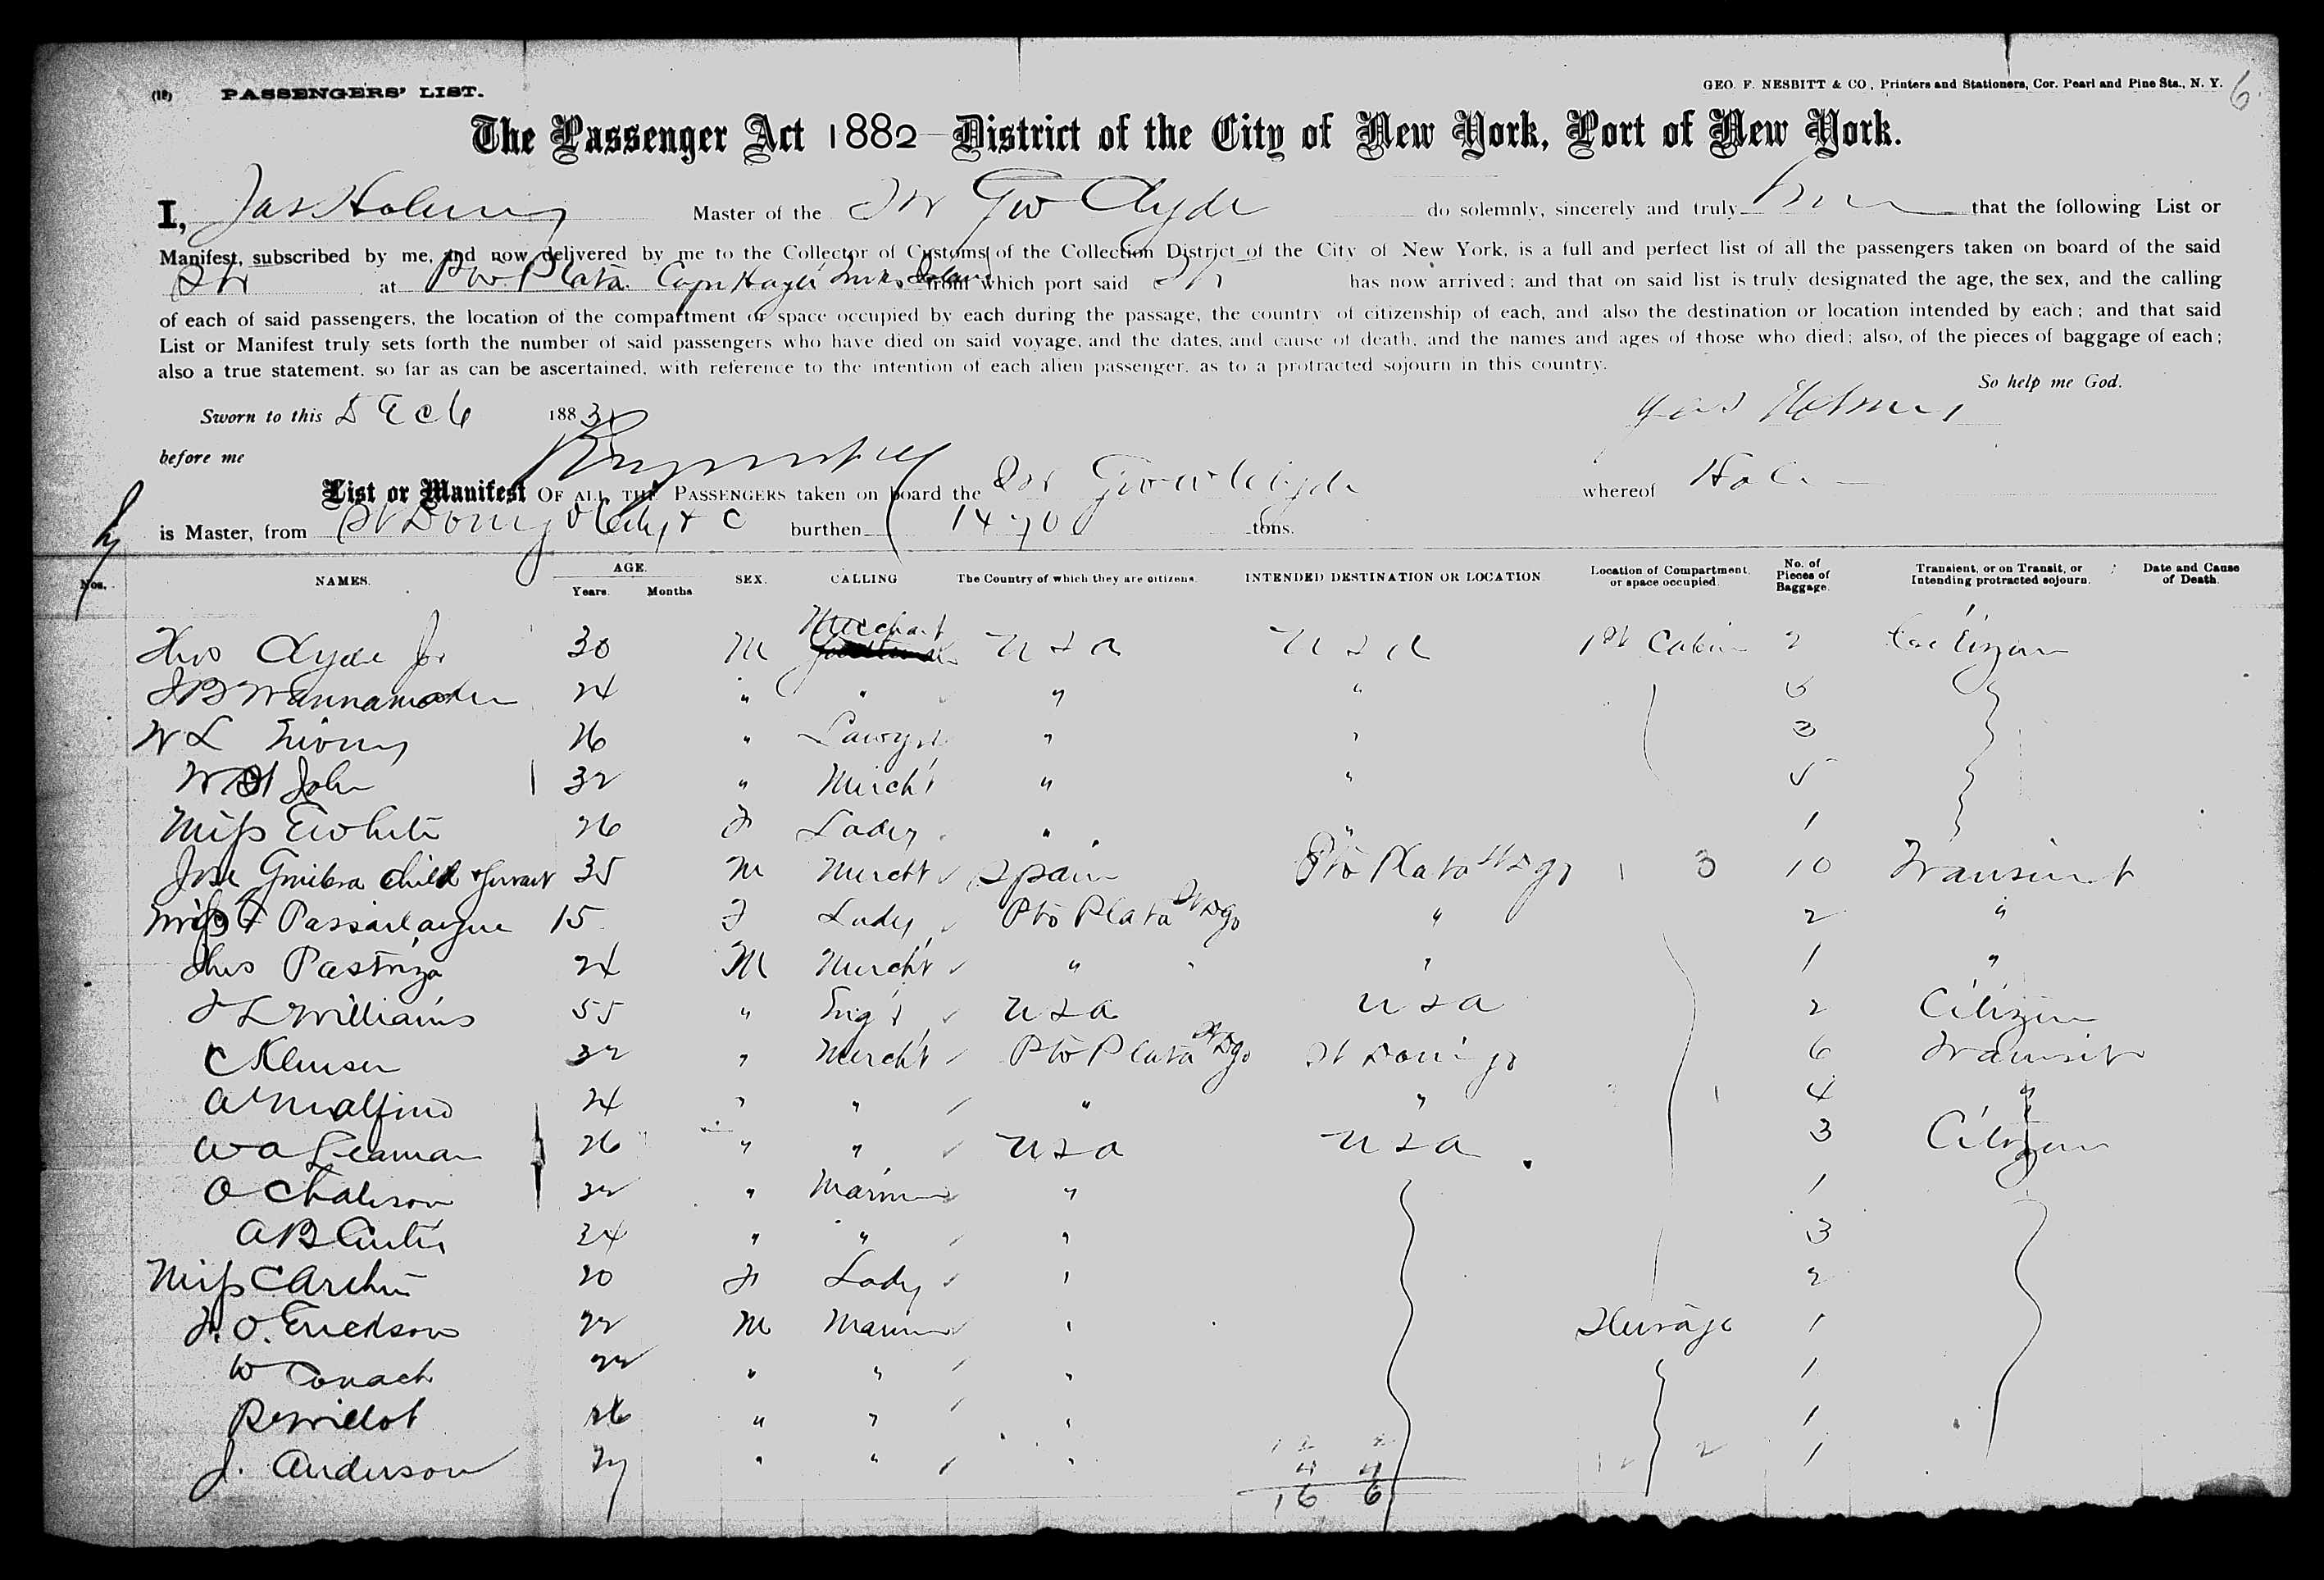 (18) PASSENGERS' LIST.
GEO. F. NESBITT & CO., Printers and Stationers, Cor. Pearl and Pine Sts., N. Y.
6
The Passenger Act 1882 – District of the City of New York, Port of New York.
I, Jas Holmes Master of the Str Geo W Clyde do solemnly, sincerely and truly that the following List or
Manifest, subscribed by me, and now delivered by me to the Collector of Customs of the Collection District of the City of New York, is a full and perfect list of all the passengers taken on board of the said
Str at Pto Plata. from which port said Str has now arrived; and that on said list is truly designated the age, the sex, and the calling
of each of said passengers, the location of the compartment or space occupied by each during the passage, the country of citizenship of each, and also the destination or location intended by each; and that said
List or Manifest truly sets forth the number of said passengers who have died on said voyage, and the dates, and cause of death, and the names and ages of those who died; also, of the pieces of baggage of each;
also a true statement, so far as can be ascertained, with reference to the intention of each alien passenger, as to a protracted sojourn in this country.
So help me God.
Sworn to this Dec 6 1883
Jas Holmes
before me
List or Manifest OF ALL THE PASSENGERS taken on board the Str Geo W Clyde whereof
is Master, from St Domingo City & C burthen 1470 tons.
Nos. NAMES. AGE. Years. Months. SEX. CALLING The Country of which they are citizens. INTENDED DESTINATION OR LOCATION Location of Compartment, or space occupied. No. of Pieces of Baggage. Transient, or on Transit, or Intending protracted sojourn. Date and Cause of Death.
Thos Clyde Jr 30 M Merchant U S A U S A 1st Cabin 2 Citizen
24 " " " " 5
W L 26 " Lawyer " " 3
W St John 32 " Mercht " " 5
Miss E White 26 F Lady " " 1
Jose child & servant 35 M Mercht Spain Pto Plata St Dgo 3 10 Transient
Miss Passailaigue 15 F Lady Pto Plata St Dgo " 2 "
Thos Pastriza 24 M Mercht " " 1 "
J L Williams 55 " Eng'r U S A U S A 2 Citizen
C Klensen 32 " Mercht Pto Plata St Dgo St Domingo 6 Transit
24 " " " " 4 "
W A Seaman 26 " " U S A U S A 3 Citizen
32 " Mariner " 1
A B Curtis 24 " " " 3
Miss C Archer 20 F Lady " 2
J. O. Erickson 22 M Mariner " Steerage 1
W Conach 22 " " " 1
26 " " " 1
J. Anderson 27 " " " 1
12 2
4 4
16 6